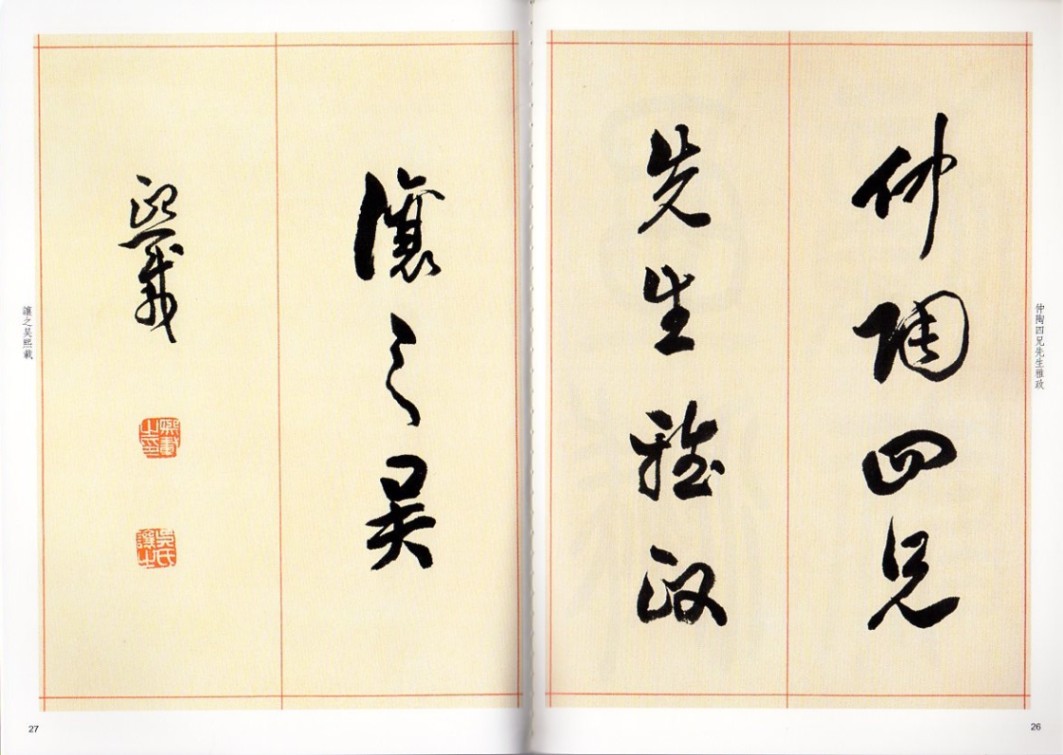 仲陶四兄先生雅政
仲陶四兄
先生雅政
26
讓之吴
熙載
熙載之印
吳氏讓之
讓之吴熙載
27